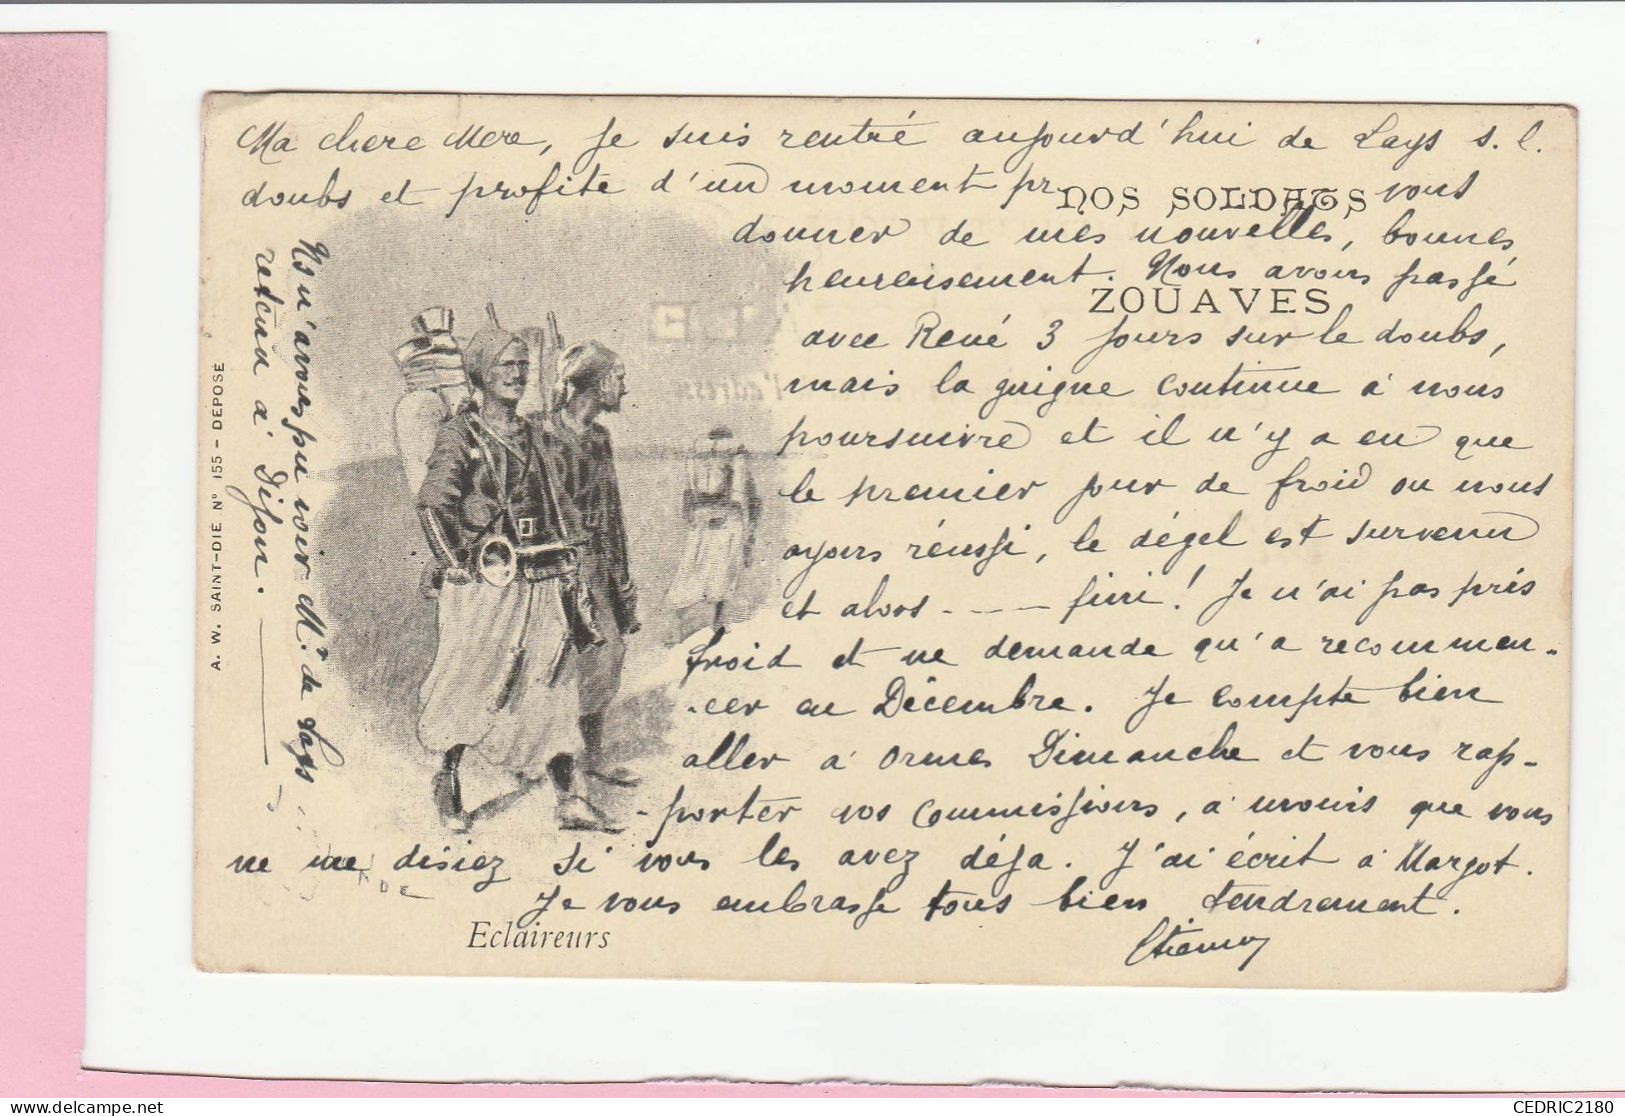 Ma chere Mere, je suis rentré aujourd'hui de Lays s. l.
doubs et profite d'un moment pr vous
NOS SOLDATS
donner de mes nouvelles, bonnes
heureusement. Nous avons passé
ZOUAVES
avec René 3 jours sur le doubs,
mais la guigne continue à nous
poursuivre et il n'y a eu que
le premier jour de froid ou nous
ayons réussi, le dégel est survenu
et alors - - - - fini! Je n'ai pas pris
froid et ne demande qu'a recommen-
-cer en Décembre. Je compte bien
aller à Ormes Dimanche et vous rap-
-porter vos commissions, à moins que vous
ne me disiez si vous les avez déja. J'ai écrit à Margot.
Je vous embrasse tous bien tendrement.
Etienne
Eclaireurs
Ns n'avons pu voir Mr de Lays
retenu à Dijon.
A. W. SAINT-DIE N° 155 - DÉPOSÉ
CEDRIC2180